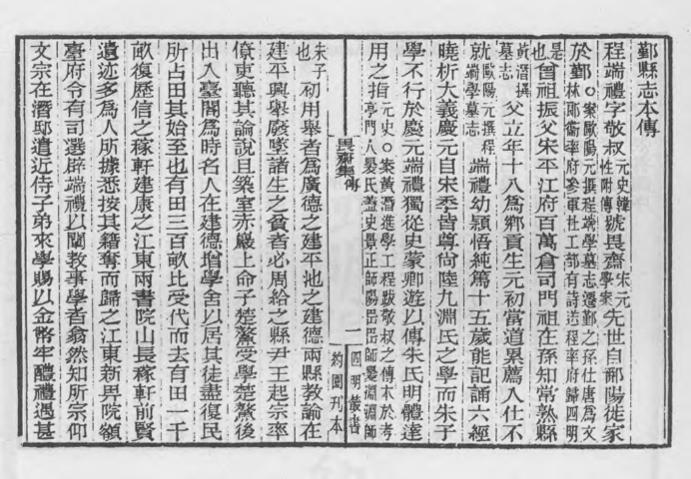 鄞縣志本傳
程端禮字敬叔元史韓性附傳號畏齋宋元學案先世自鄱陽徙家
於鄞〇案歐陽元撰程端學墓志遷鄞之孫仕唐為文林郎衛率府參軍杜工部有詩送程率府歸四明
是也曾祖振父宋平江府百萬倉司門祖在孫知常熟縣
黃溍撰墓志父立年十八為鄉貢生元初當道累薦入仕不
就歐陽元撰程端學墓志端禮幼穎悟純篤十五歲能記誦六經
曉析大義慶元自宋季皆尊尚陸九淵氏之學而朱子
學不行於慶元端禮獨從史蒙卿遊以傳朱氏明體達
用之指元史〇案黃溍進學工程跋敬叔之傳本於考亭門人㬊氏蓋史景正師陽嵒嵒師㬊淵淵師
畏齋集傳
一
四明叢書
約園刊本
朱子也初用舉者為廣德之建平池之建德兩縣教諭在
建平興舉廢墜諸生之貧者必周給之縣尹王起宗率
僚吏聽其論說且築室亦嚴上命子楚鰲受學楚鰲後
出入臺閣為時名人在建德增學舍以居其徒盡復民
所占田其始至也有田三百畝比受代而去有田一千
畝復歷信之稼軒建康之江東兩書院山長稼軒前賢
遺迹多為人所據悉按其籍奪而歸之江東新畀院額
臺府令有司選辟端禮以闡教事學者翕然知所宗仰
文宗在潛邸遣近侍子弟來學賜以金幣牢醴禮遇甚